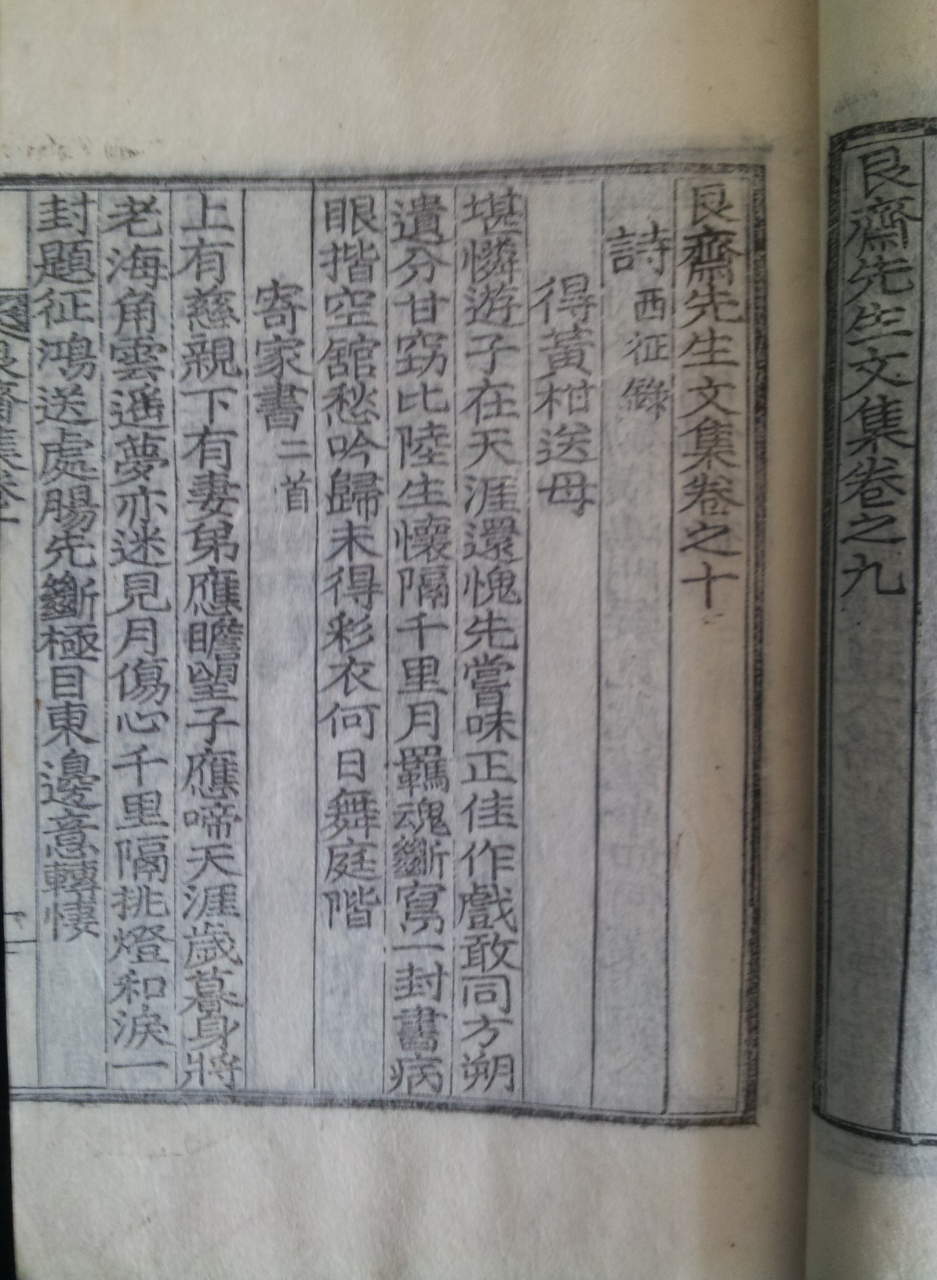 艮齋先生文集卷之九
艮齋先生文集卷之十
詩 西征錄
得黃柑送母
堪憐遊子在天涯還愧先嘗味正佳作戲敢同方朔
遺分甘窃比陸生懷隔千里月羈魂斷寫一封書病
眼揩空舘愁吟歸未得彩衣何日舞庭階
寄家書 二首
上有慈親下有妻弟應瞻望子應啼天涯歲暮身將
老海角雲遙夢亦迷見月傷心千里隔挑燈和淚一
封題征鴻送處腸先斷極目東邊意轉悽
艮齋集卷十